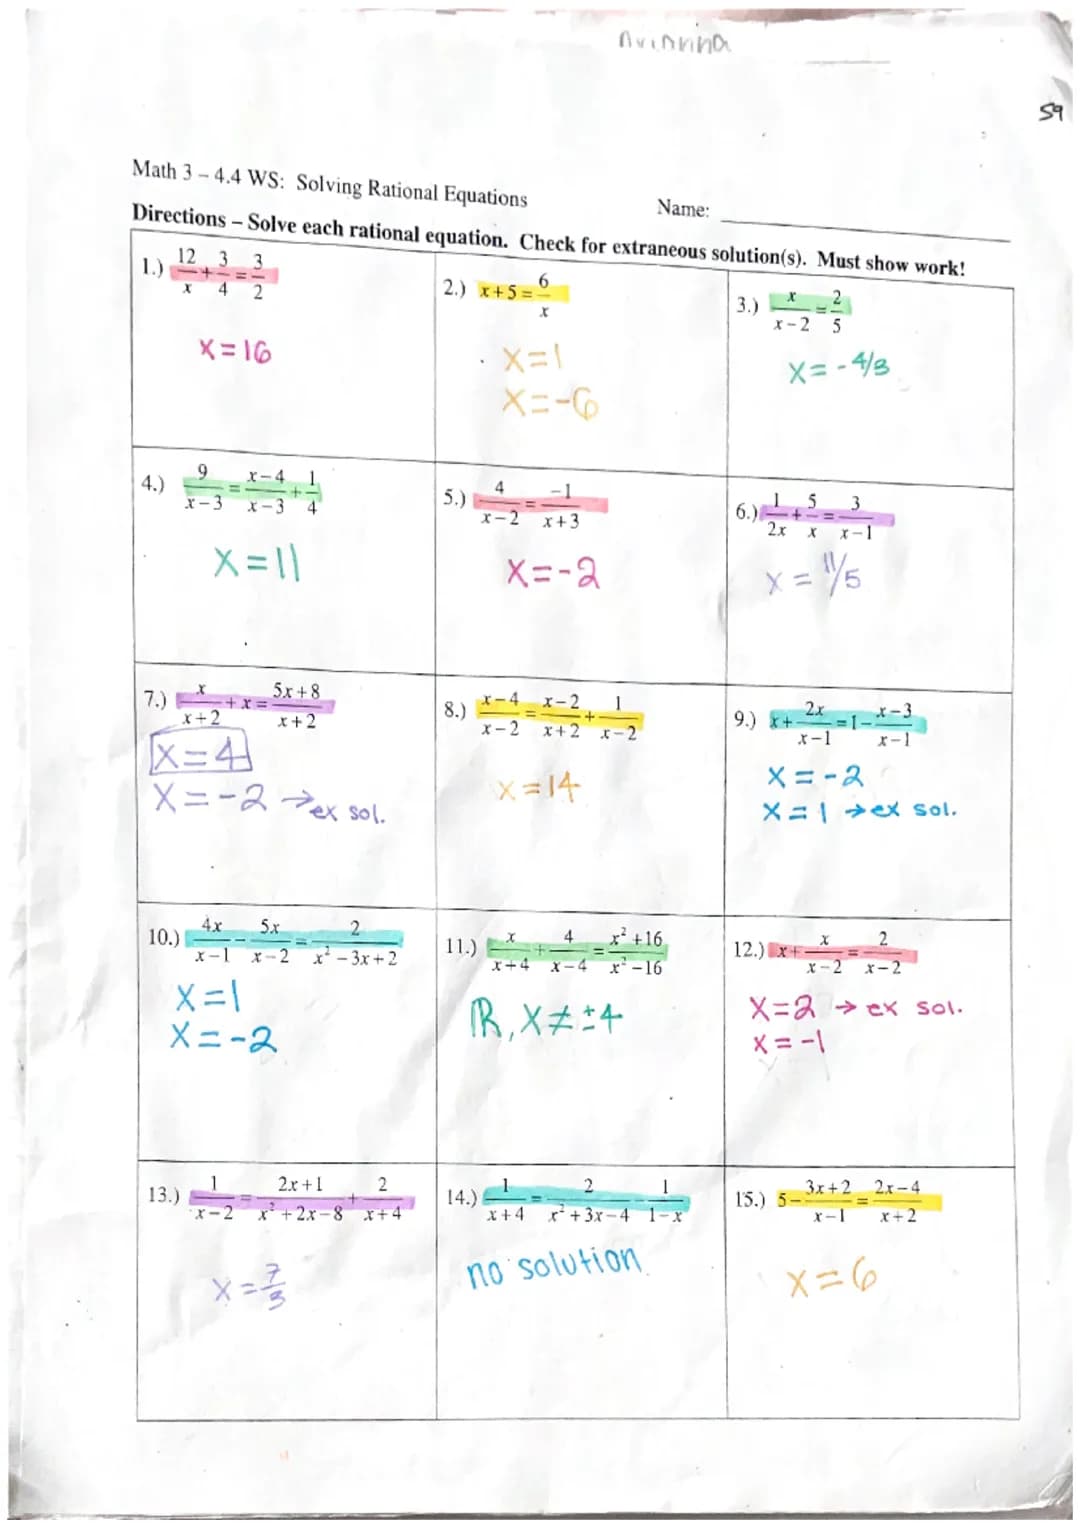 Avianna
59
Math 3 – 4.4 WS: Solving Rational Equations
Name:
Directions – Solve each rational equation. Check for extraneous solution(s). Must show work!
1.) 12/x + 3/4 = 3/2
x = 16
2.) x + 5 = 6/x
x = 1
x = -6
3.) x/(x-2) = 2/5
x = -4/3
4.) 9/(x-3) = (x-4)/(x-3) + 1/4
x = 11
5.) 4/(x-2) = -1/(x+3)
x = -2
6.) 1/2x + 5/x = 3/(x-1)
x = 11/5
7.) x/(x+2) + x = (5x+8)/(x+2)
x = 4
x = -2 → ex sol.
8.) (x-4)/(x-2) = (x-2)/(x+2) + 1/(x-2)
x = 14
9.) x + 2x/(x-1) = 1 - (x-3)/(x-1)
x = -2
x = 1 → ex sol.
10.) 4x/(x-1) - 5x/(x-2) = 2/(x² - 3x + 2)
x = 1
x = -2
11.) x/(x+4) + 4/(x-4) = (x² + 16)/(x² - 16)
ℝ, x ≠ ±4
12.) x + x/(x-2) = 2/(x-2)
x = 2 → ex sol.
x = -1
13.) 1/(x-2) = (2x+1)/(x² + 2x - 8) + 2/(x+4)
x = 7/3
14.) 1/(x+4) = 2/(x² + 3x - 4) - 1/(1-x)
no solution
15.) 5 - (3x+2)/(x-1) = (2x-4)/(x+2)
x = 6